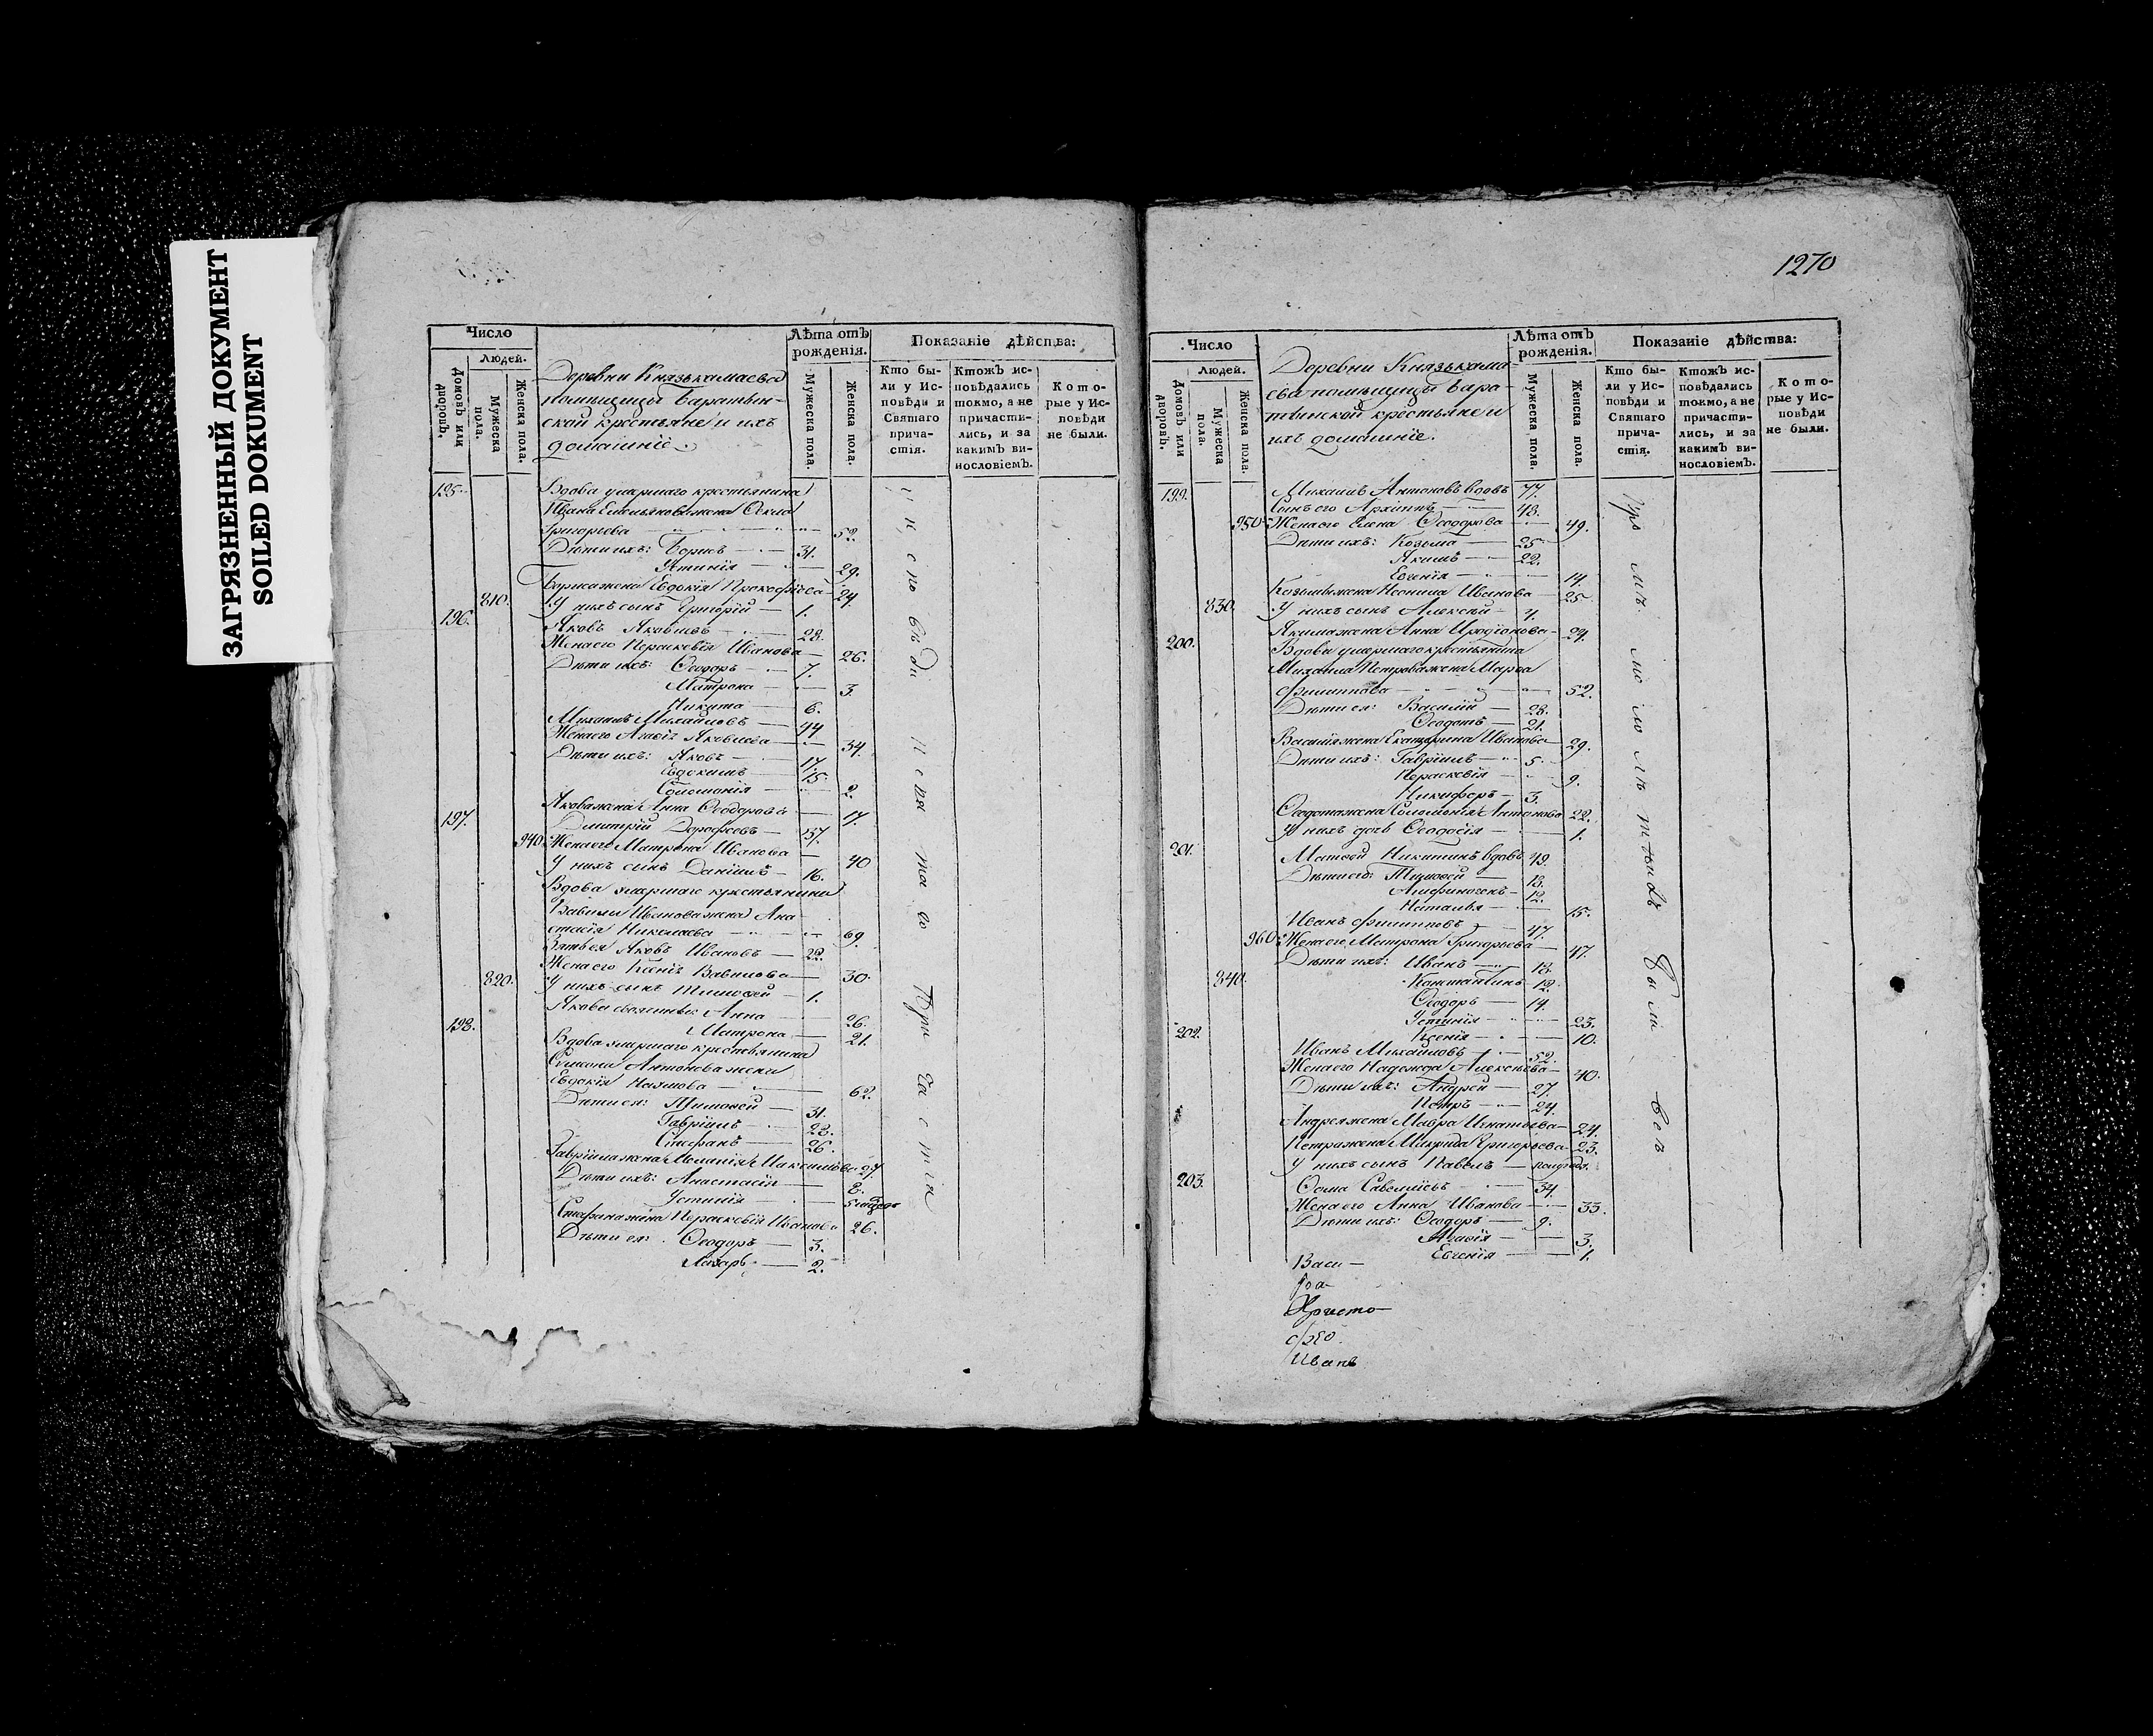 ЗАГРЯЗНЕННЫЙ ДОКУМЕНТ
SOILED DOKUMENT
Число
Людей.
Домовъ или дворовъ.
Мужеска пола.
Женска пола.
Деревни Князькамаева
помѣщицы Баратын-
ской крестьяне и ихъ
домашніе
Лѣта отъ рожденія.
Мужеска пола.
Женска пола.
Показаніе дѣйства:
Кто бы-
ли у Ис-
повѣди и
Святаго
прича-
стія.
Ктожъ ис-
повѣдались
токмо, а не
причасти-
лись, и за
какимъ ви-
нословіемъ.
Кото-
рые у Ис-
повѣди
не были.
195. Вдова умершаго крестьянина
Ивана Емельянова жена Фекла
Григорьева 52.
Дѣти ихъ: Борисъ 31.
Устинія 29.
Бориса жена Евдокія Прокофіева 24.
810. У нихъ сынъ Григорій 1.
196. Яковъ Яковлевъ 28.
Жена его Параскевія Иванова 26.
Дѣти ихъ: Ѳеодоръ 7.
Матрона 3.
Никита 6.
Михаилъ Михайловъ 44
Жена его Агафія Яковлева 34.
Дѣти ихъ: Яковъ 17.
Евдокимъ 15.
Соломонія 2.
Якова жена Анна Ѳеодорова 17.
197. Дмитрій Дорофеевъ 37.
940. Жена его Матрона Иванова 40
У нихъ сынъ Даніилъ 16.
Вдова умершаго крестьянина
Вавилы Иванова жена Ана
стасія Николаева 69.
Зять ея Яковъ Ивановъ 22.
Жена его Ксенія Вавилова 30.
820. У нихъ сынъ Тимофей 1.
Якова своячины: Анна 26.
Матрона 21.
198. Вдова умершаго крестьянина
Симеона Антонова жена
Евдокія Наумова 62.
Дѣти ея: Тимофей 31.
Гавріилъ 28.
Стефанъ 26.
Гавріила жена Меланія Максимова 27.
Дѣти ихъ: Анастасія 8.
Устинія
Стефана жена Параскевія Иванова 26.
Дѣти ея: Ѳеодоръ 3.
Лазарь 2.
исповѣди и святаго Причастія
1270
Число
Людей.
Домовъ или дворовъ.
Мужеска пола.
Женска пола.
Деревни Князькама
ева помѣщицы Бара-
тынской крестьяне и
ихъ домашніе.
Лѣта отъ рожденія.
Мужеска пола.
Женска пола.
Показаніе дѣйства:
Кто бы-
ли у Ис-
повѣди и
Святаго
прича-
стія.
Ктожъ ис-
повѣдались
токмо, а не
причасти-
лись, и за
какимъ ви-
нословіемъ.
Кото-
рые у Ис-
повѣди
не были.
199. Михаилъ Антоновъ вдовъ 77.
Сынъ его Архипъ 48.
950. Жена его Елена Ѳеодорова 49.
Дѣти ихъ: Козьма 25
Якимъ 22.
Евгенія 14.
Козьмы жена Неонила Иванова 25
830. У нихъ сынъ Алексѣй 4.
Якима жена Анна Иродіонова 24.
200. Вдова умершаго крестьянина
Михаила Петрова жена Марѳа
Филиппова 52.
Дѣти ея: Василій 28.
Ѳеодотъ 21.
Василія жена Екатерина Иванова 29.
Дѣти ихъ: Гавріилъ 5.
Параскевія 9.
Никифоръ 3.
Ѳеодота жена Соломонія Антонова 22.
У нихъ дочь Ѳеодосія 1.
201. Матвей Никитинъ вдовъ 49.
Дѣти его: Тимофей 18.
Анфиногенъ 12.
Наталья 15.
Иванъ Филипповъ 47.
960. Жена его Матрона Григорьева 47.
Дѣти ихъ: Иванъ 18.
840. Константинъ 12.
Ѳеодоръ 14.
Устинія 23.
202. Ксенія 10.
Иванъ Михайловъ 52.
Жена его Надежда Алексѣева 40.
Дѣти ихъ: Андрей 27.
Петръ 24.
Андрея жена Мавра Игнатьева 24.
Петра жена Мавра Григорьева 23.
У нихъ сынъ Павелъ полугода.
203. Ѳома Савельевъ 34.
Жена его Анна Иванова 33.
Дѣти ихъ: Ѳеодоръ 9.
Агафія 3.
Евгенія 1.
были все
Васи-
Христо-
Иванъ